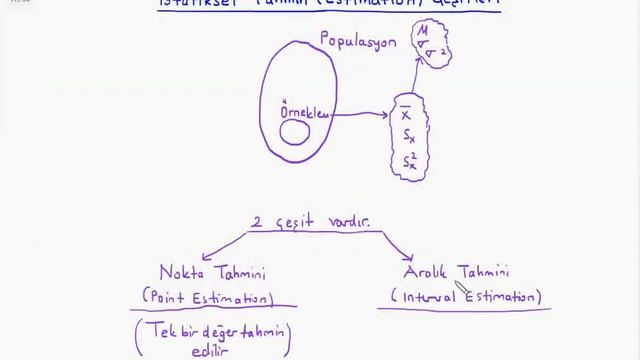 İstatiksel Tahmin (Estimation) Çeşitleri
Populasyon
μ
σ
σ²
Örneklem
x̄
Sx
Sx²
2 çeşit vardır.
Nokta Tahmini
(Point Estimation)
(Tek bir değer tahmin
edilir)
Aralık Tahmini
(Interval Estimation)